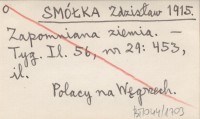 o SMÓŁKA Zdzisław 1915.
Zapomniana ziemia. –
Tyg. Il. 56, nr 29: 453,
il.
Polacy na Węgrzech.